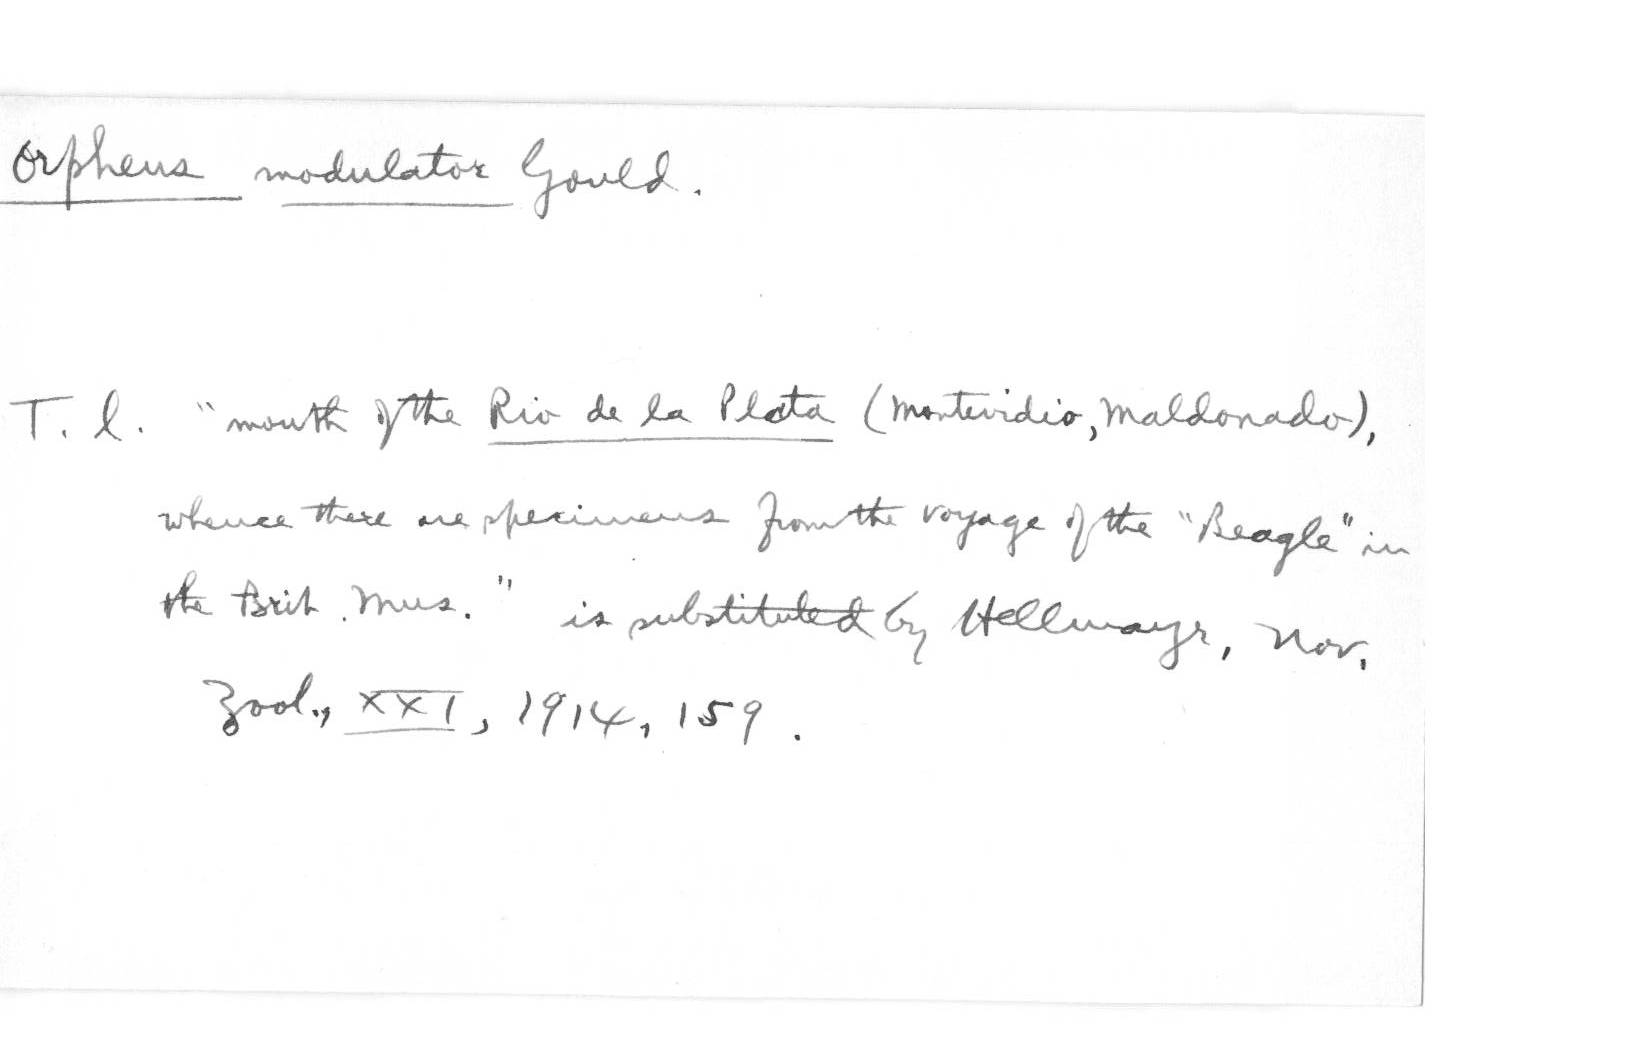 Orpheus modulator Gould.
T. l. "mouth of the Rio de la Plata (Montevidio, Maldonado),
whence there are specimens from the voyage of the "Beagle" in
the Brit. Mus." is substituted by Hellmayr, Nov.
Zool., XXI, 1914, 159.